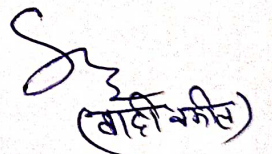 (वादी वकील)